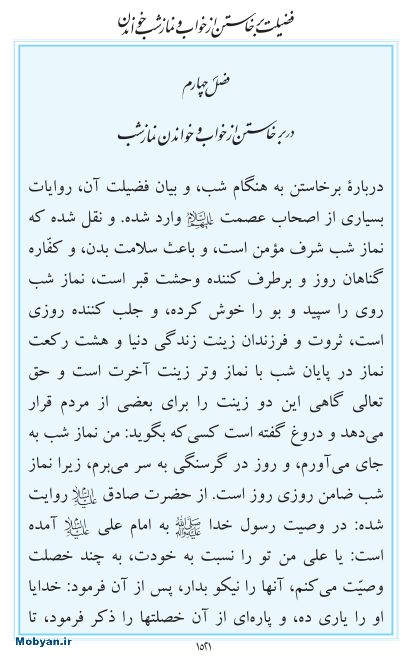 فضیلت برخاستن از خواب و نماز شب خواندن
فصل چهارم
در برخاستن از خواب و خواندن نماز شب
دربارهٔ برخاستن به هنگام شب، و بیان فضیلت آن، روایات
بسیاری از اصحاب عصمت علیهم‌السلام وارد شده. و نقل شده که
نماز شب شرف مؤمن است، و باعث سلامت بدن، و کفّاره
گناهان روز و برطرف کننده وحشت قبر است، نماز شب
روی را سپید و بو را خوش کرده، و جلب کننده روزی
است، ثروت و فرزندان زینت زندگی دنیا و هشت رکعت
نماز در پایان شب با نماز وتر زینت آخرت است و حق
تعالی گاهی این دو زینت را برای بعضی از مردم قرار
می‌دهد و دروغ گفته است کسی‌که بگوید: من نماز شب به
جای می‌آورم، و روز در گرسنگی به سر می‌برم، زیرا نماز
شب ضامن روزی روز است. از حضرت صادق علیه‌السلام روایت
شده: در وصیت رسول خدا صلی‌الله‌علیه‌وآله به امام علی علیه‌السلام آمده
است: یا علی من تو را نسبت به خودت، به چند خصلت
وصیّت می‌کنم، آنها را نیکو بدار، پس از آن فرمود: خدایا
او را یاری ده، و پاره‌ای از آن خصلتها را ذکر فرمود، تا
Mobyan.ir
۱۵۲۱